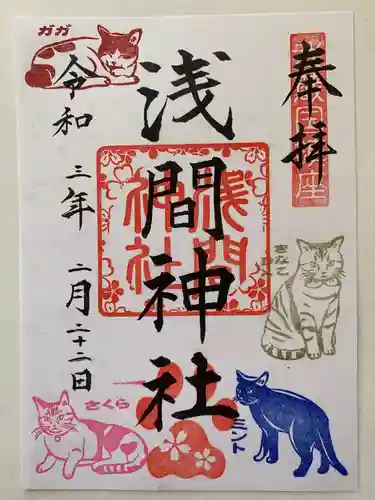 奉拝
浅間神社
浅間
神社
令和三年二月二十二日
ガガ
きなこ
さくら
ミント